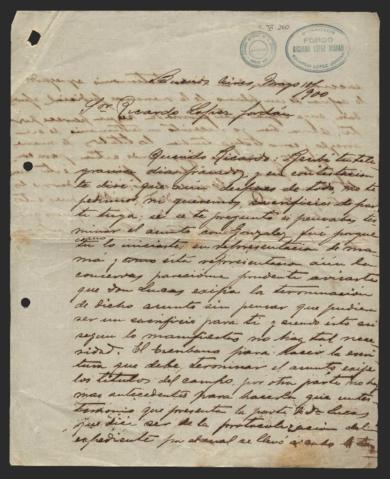 FONDO
RICARDO LOPEZ JORDAN
Buenos Aires, Mayo
1900
Sor. Ricardo Lopez Jordán
Querido Ricardo: Recibí tu tele
grama días pasados y en contestación
te diré que aun despues de todo no te
pedimos, ni queremos, sacrificios de par
te tuya; se te preguntó si pensabas ter
minar el asunto con Gonzalez, fué porque
como tu lo iniciaste en representación de ma
má y como esta representación aún la
conservas parecióme prudente avisarte
que don Lucas exigía la terminación
de dicho asunto sin pensar que pudiera
ser un sacrificio para ti y siendo esto así
segun lo manifiestas no hay tal nece
sidad. El Escribano para hacer la escri
tura que debe terminar el asunto exige
los títulos del campo, por otra parte no hay
mas antecedentes para hacerla que un tes
timonio que presenta la parte de dn Lucas,
que dice ser de la protocolización del
expediente por el cual se llevó a cabo la